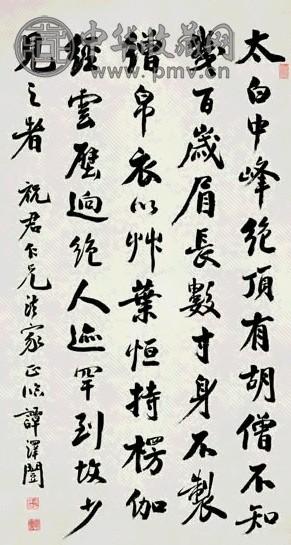 中华收藏网
www.pmv.cn
太白中峰絕頂有胡僧不知
幾百歲眉長數寸身不製
繒帛衣以艸葉恒持楞伽
經雲壁迥絕人迹罕到故少
見之者 祝君仁兄法家正临 譚澤闓